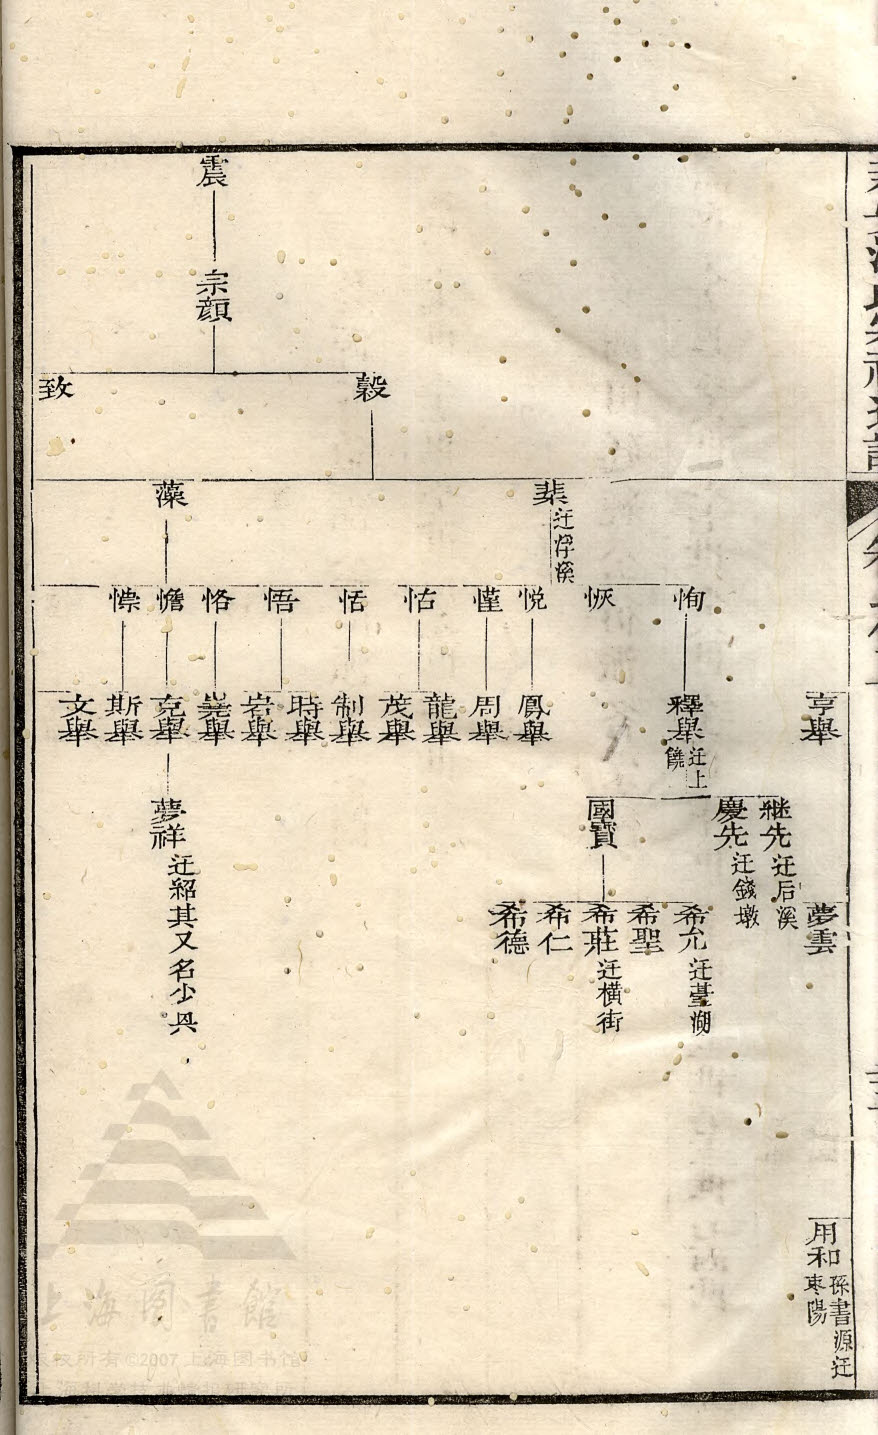 亨舉
夢雲
用和
孫書源迁
枣陽
震
宗顔
縠
致
棐
迁浮溪
藻
恂
恢
悦
慬
怙
恬
悟
恪
憺
懔
釋舉
迁上
饒
鳳舉
周舉
龍舉
茂舉
制舉
時舉
岩舉
堯舉
克舉
斯舉
文舉
継先
迁后溪
慶先
迁錢墩
國寳
夢祥
迁紹其又名少兵
希允
迁臺湖
希聖
希莊
迁橫街
希仁
希德
上海图書館
版权所有©2007上海图书馆